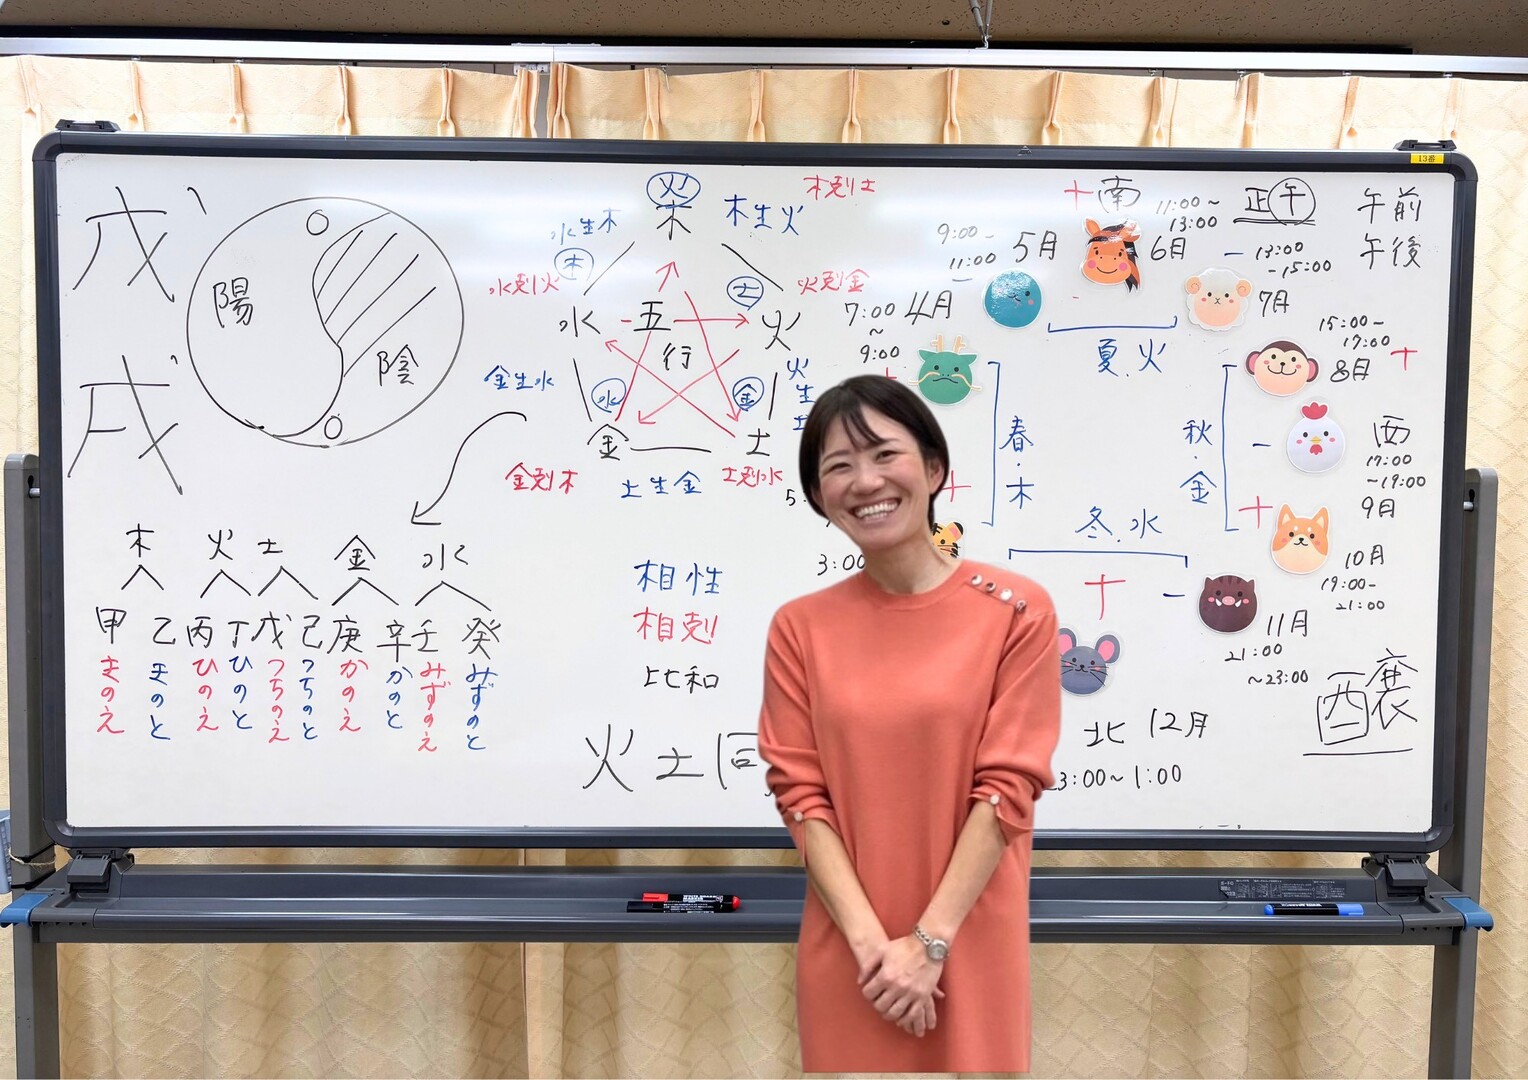 戊
戌
陽
陰
木
火
土
金
水
甲
乙
丙
丁
戊
己
庚
辛
壬
癸
きのえ
きのと
ひのえ
ひのと
つちのえ
つちのと
かのえ
かのと
みずのえ
みずのと
火
木
水生木
木生火
木剋土
木
水剋火
土
火剋金
水
五行
火
金生水
水
金
火生土
金
土
金剋木
土生金
土剋水
相性
相剋
比和
火土同
+
南
11:00~
13:00
正午
午前
午後
9:00-
11:00
5月
6月
-
13:00
-15:00
-
7:00
~
9:00
4月
7月
夏.火
15:00-
17:00
8月
+
春・木
秋・金
-
酉
17:00
~19:00
9月
5:
+
+
3:00
冬.水
10月
19:00-
21:00
+
-
11月
21:00
~23:00
醸
北
12月
23:00~1:00
13番